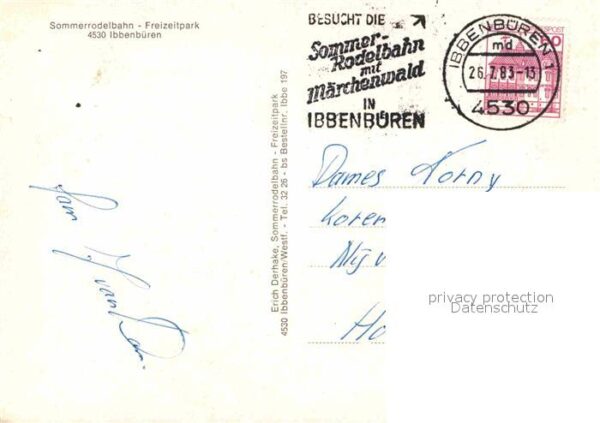 Sommerrodelbahn - Freizeitpark
4530 Ibbenbüren
BESUCHT DIE
Sommer-
Rodelbahn
mit
Märchenwald
IN
IBBENBÜREN
IBBENBÜREN 1
md
26.7.83-13
4530
Erich Derhake, Sommerrodelbahn - Freizeitpark
4530 Ibbenbüren/Westf. - Tel. 32 26 - bs Bestellnr. Ibbe 197
Fam
Dames
Koren
Ho
privacy protection
Datenschutz